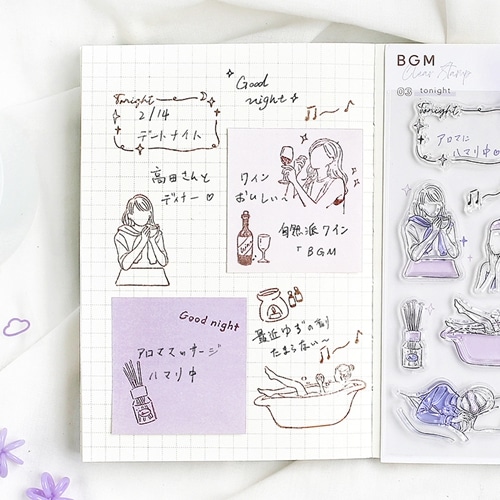 Good
night
Tonight
2/14
デートナイト
高田さんと
ディナー♡
ワイン
おいしい〜
自然派ワイン
「BGM
Good night
アロママッサージ
ハマり中
最近ゆずの香り
たまらない〜
BGM
Clear Stamp
03 tonight
Tonight
アロマに
ハマり中